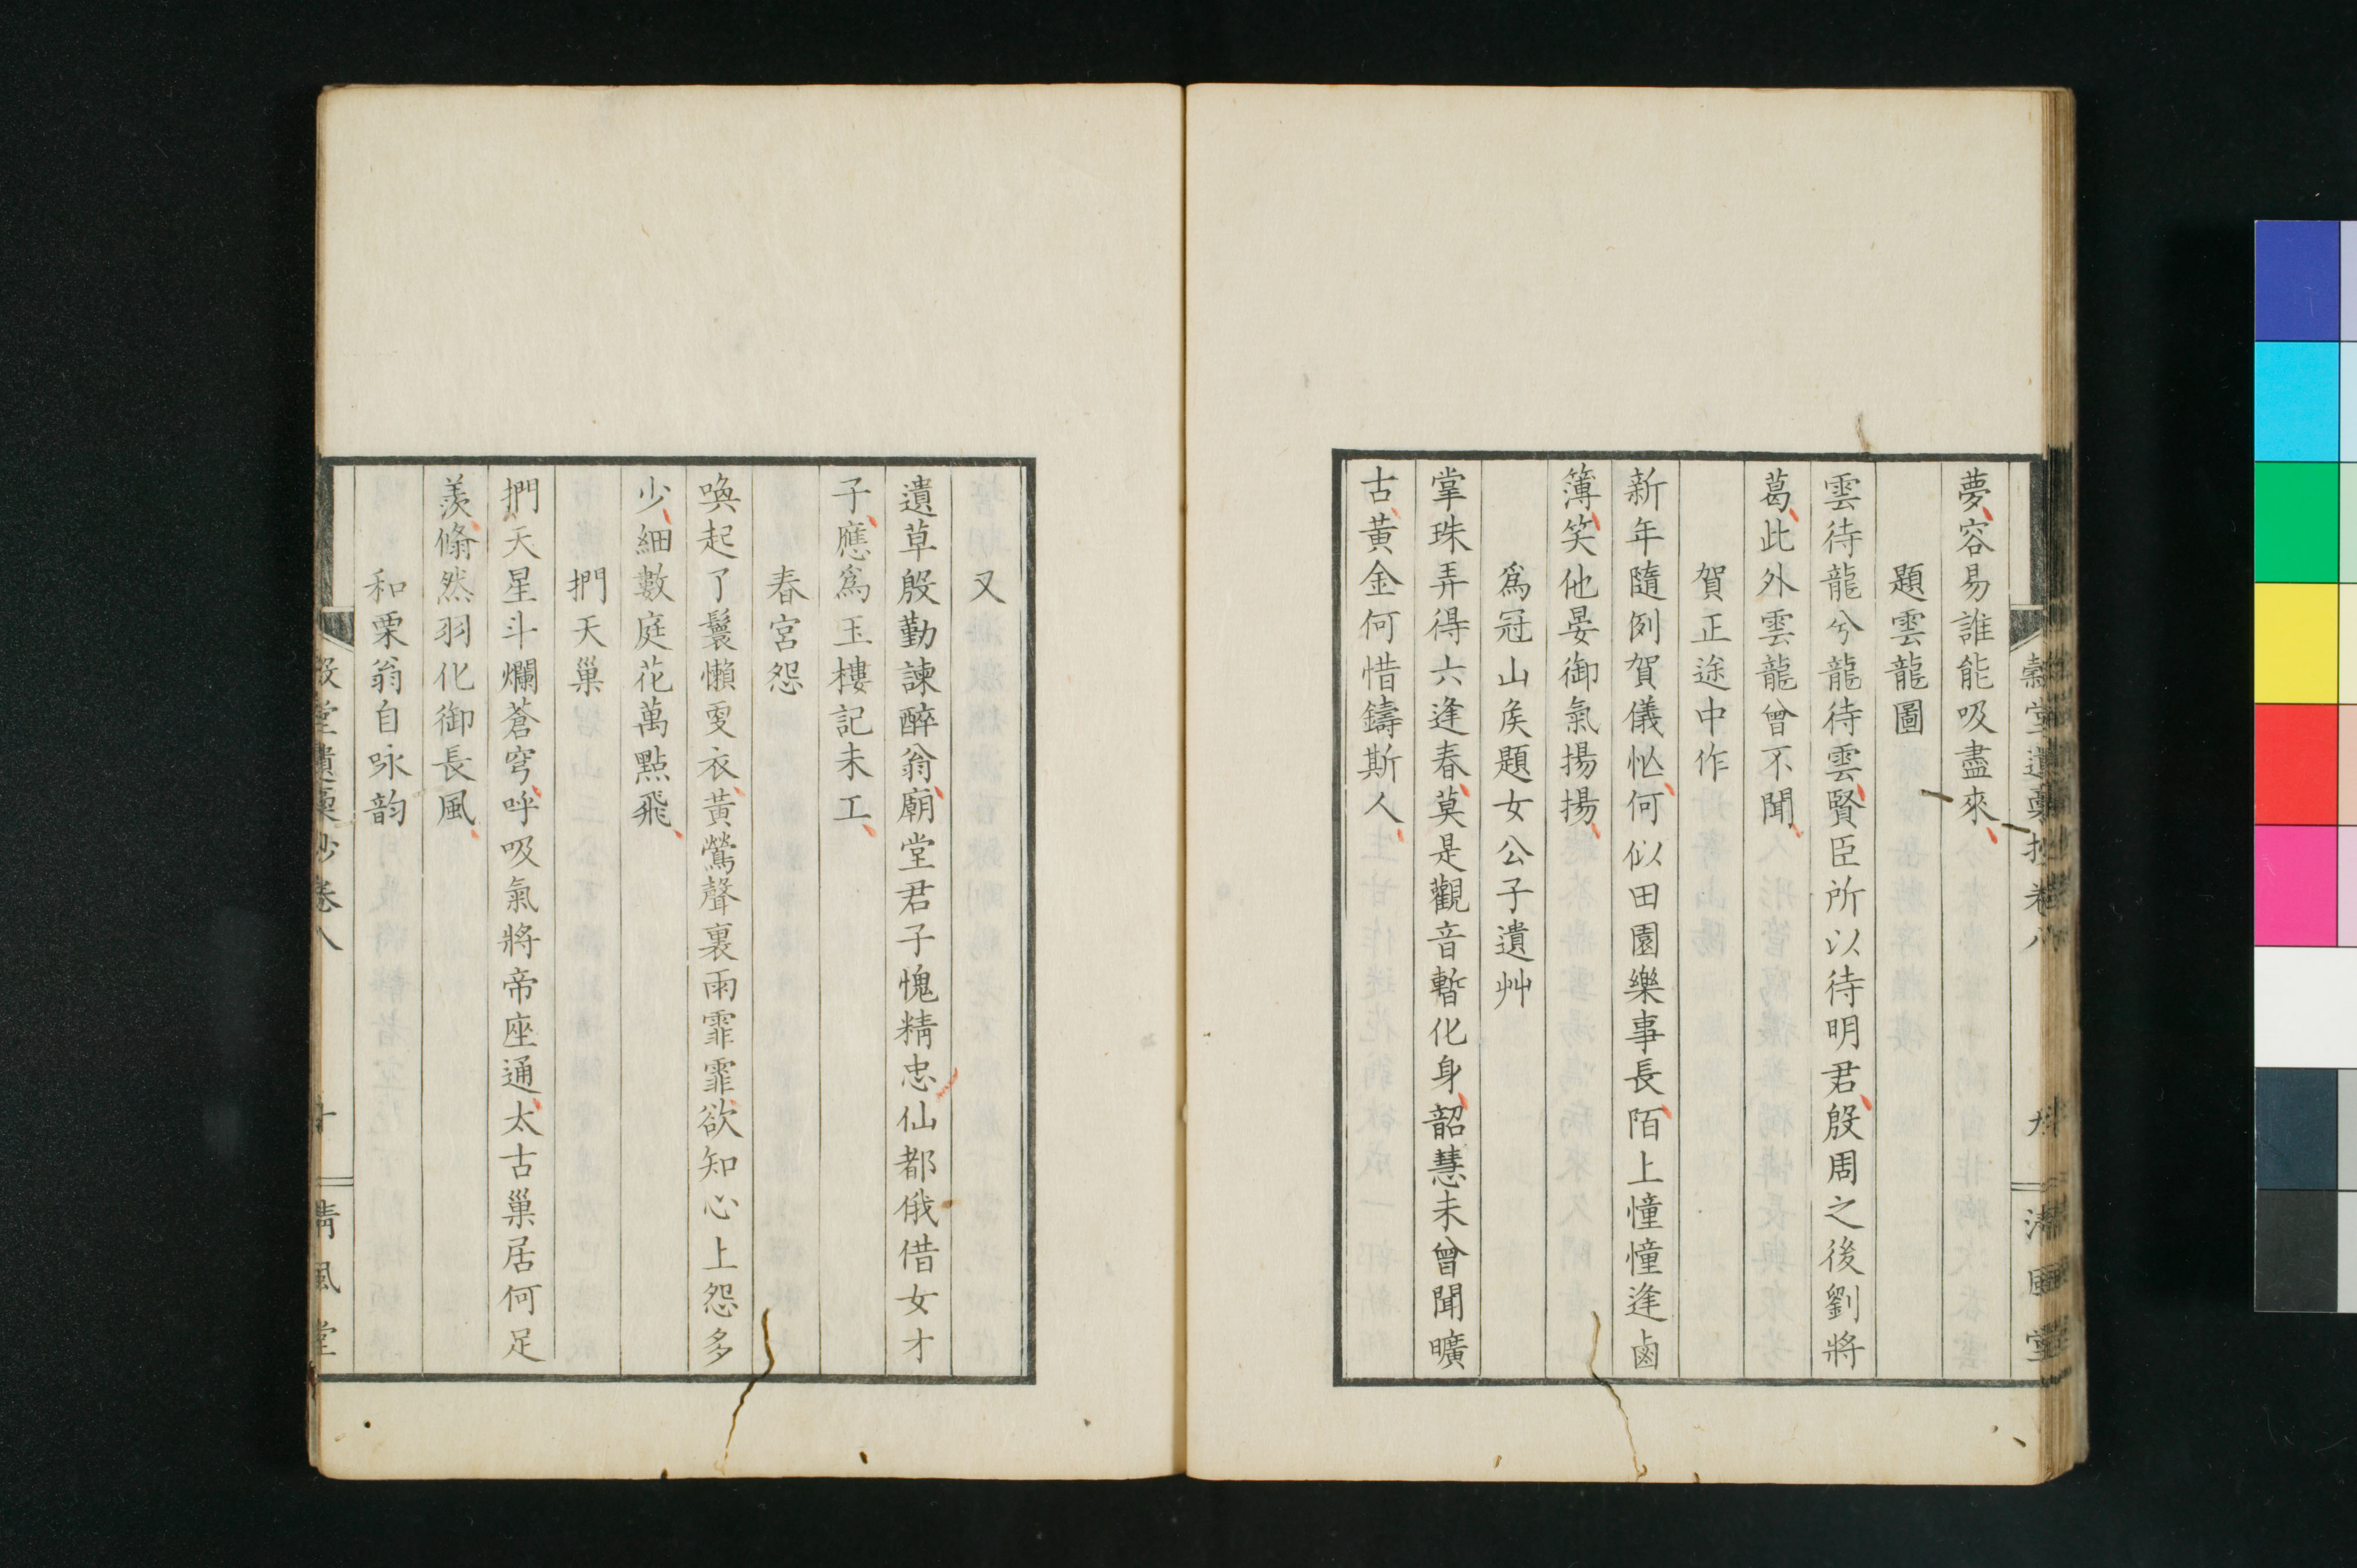 夢容易誰能吸盡來
題雲龍圖
雲待龍兮龍待雲賢臣所以待明君殷周之後劉將
葛此外雲龍曾不聞
賀正途中作
新年隨例賀儀怭何似田園樂事長陌上憧憧逢鹵
簿笑他晏御氣揚揚
爲冠山矦題女公子遺艸
掌珠弄得六逢春莫是觀音暫化身韶慧未曾聞曠
古黃金何惜鑄斯人
又
遺草殷勤諫醉翁廟堂君子愧精忠仙都俄借女才
子應爲玉樓記未工
春宮怨
喚起了鬟懶更衣黃鶯聲裏雨霏霏欲知心上怨多
少細數庭花萬點飛
捫天巢
捫天星斗爛蒼穹呼吸氣將帝座通太古巢居何足
羨翛然羽化御長風
和栗翁自咏韵
堂遺稾抄卷八
十
清風堂